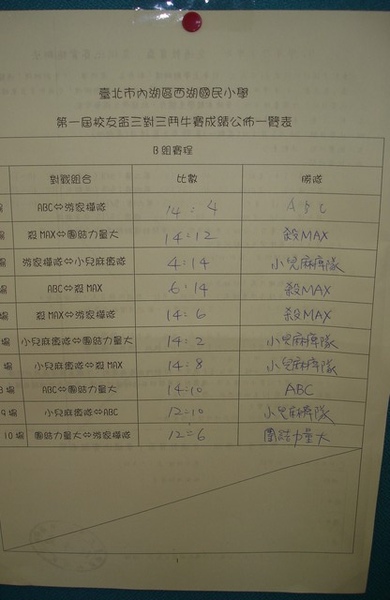 臺北市內湖區西湖國民小學
第一屆校友盃三對三鬥牛賽成績公佈一覽表
B組賽程
對戰組合 比數 勝隊
場 ABC⇔游家種隊 14:4 ABC
場 殺MAX⇔團結力量大 14:12 殺MAX
場 游家種隊⇔小兒麻痺隊 4:14 小兒麻痺隊
場 ABC⇔殺MAX 6:14 殺MAX
場 殺MAX⇔游家種隊 14:6 殺MAX
場 小兒麻痺隊⇔團結力量大 14:2 小兒麻痺隊
場 小兒麻痺隊⇔殺MAX 14:8 小兒麻痺隊
8場 ABC⇔團結力量大 14:10 ABC
9場 小兒麻痺隊⇔ABC 12:10 小兒麻痺隊
10場 團結力量大⇔游家種隊 12:6 團結力量大
1